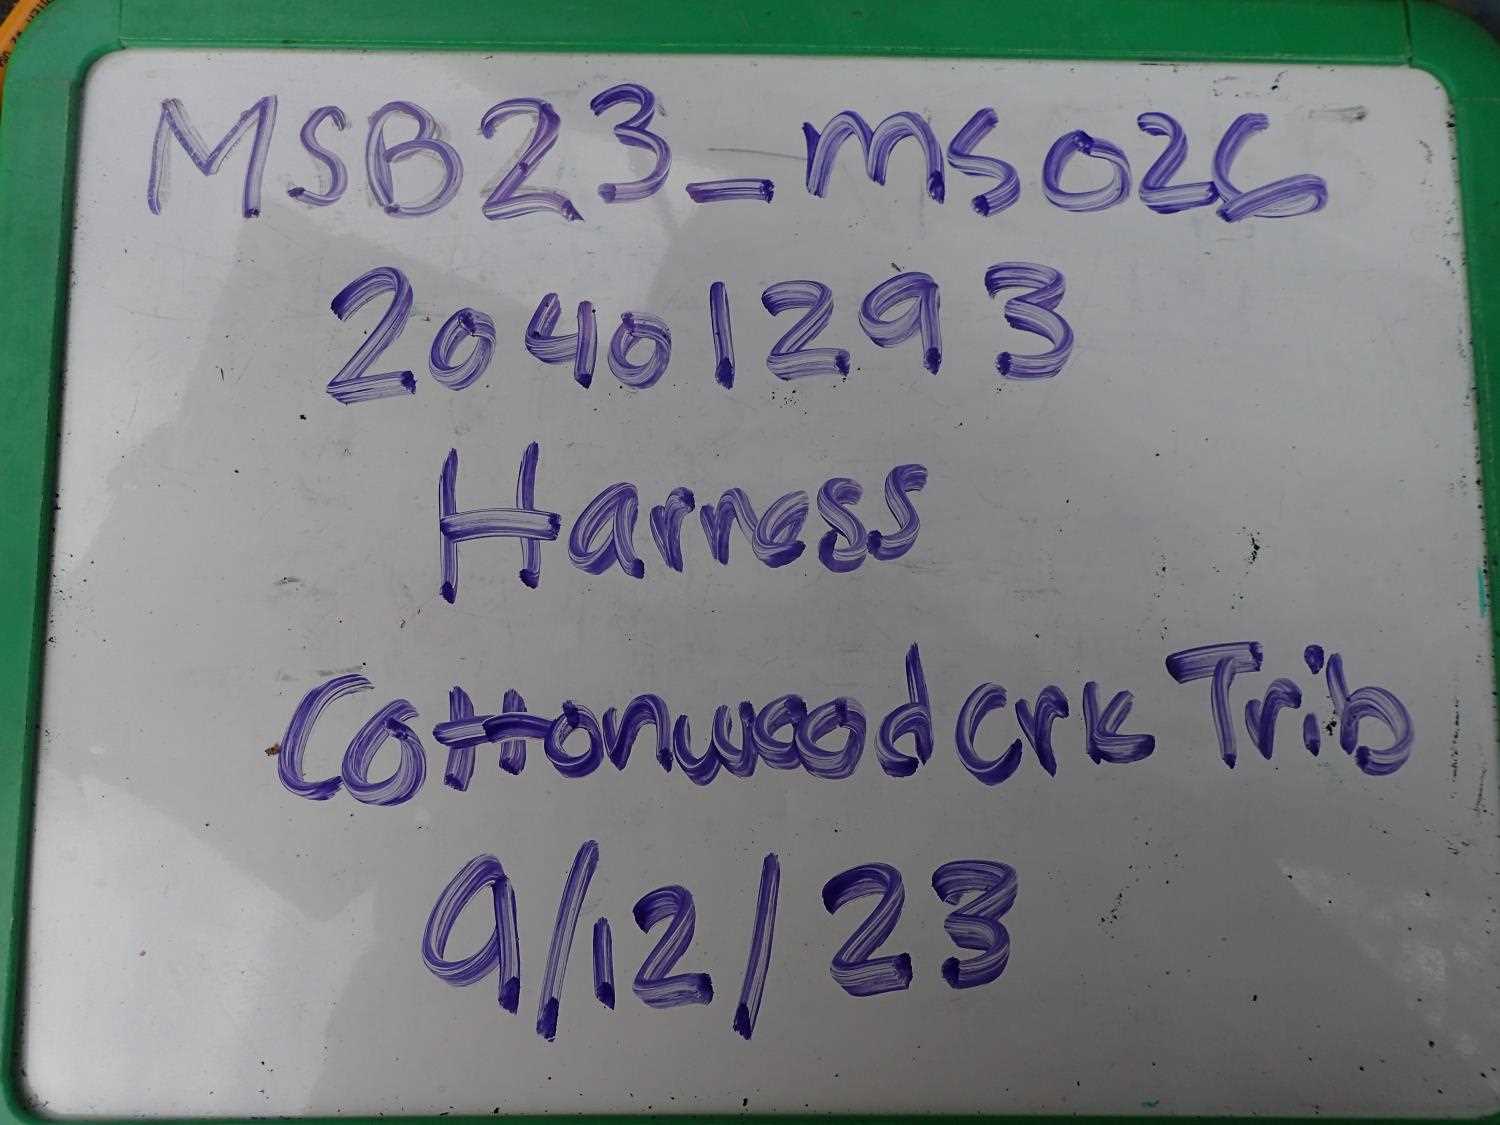 MSB23_MS026
20401293
Harness
Cottonwood Crk Trib
9/12/23